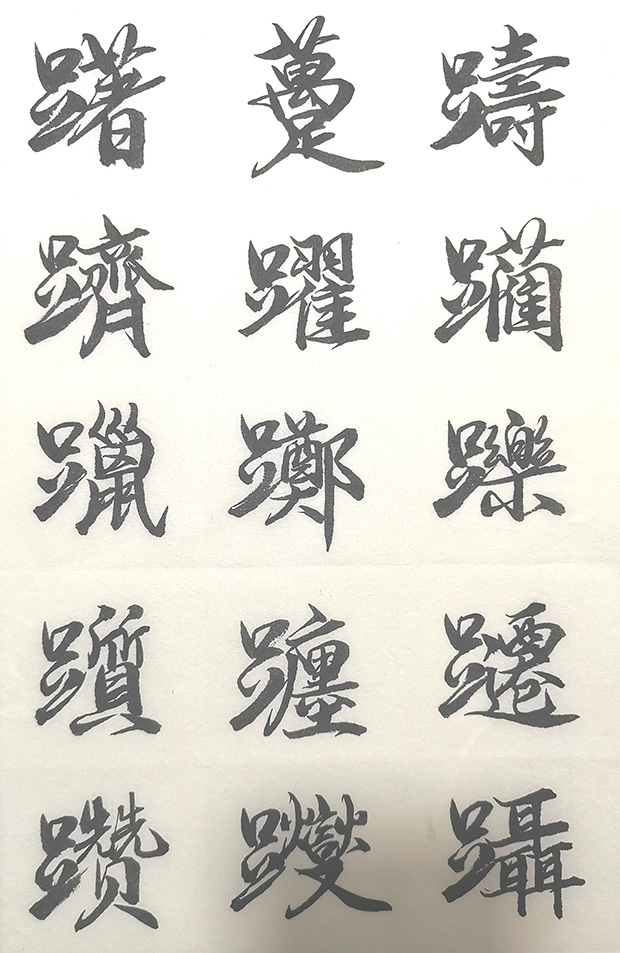 躇躉躊
躋躍躏
躐躑躒
躓躔躚
躜躞躡